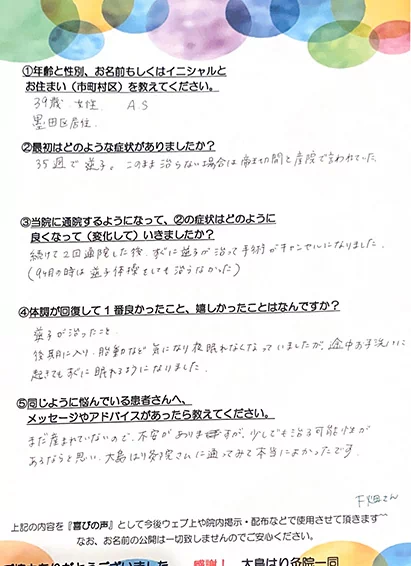 ①年齢と性別、お名前もしくはイニシャルと
お住まい（市町村区）を教えてください。
39歳 女性 AS
墨田区居住.
②最初はどのような症状がありましたか？
35週で逆子。このまま治らない場合は帝王切開と産院で言われていた
③当院に通院するようになって、②の症状はどのように
良くなって（変化して）いきましたか？
続けて2回通院した後、すぐに逆子が治って手術がキャンセルになりました.
(9ヶ月の時は逆子体操をしても治らなかった)
④体調が回復して１番良かったこと、嬉しかったことはなんですか？
逆子が治ったこと.
後期に入り、胎動など気になり夜眠れなくなっていましたが、途中お手洗いに
起きてもすぐに眠れるようになりました.
⑤同じように悩んでいる患者さんへ、
メッセージやアドバイスがあったら教えてください。
まだ産まれていないので、不安がありますが、少しでも治る可能性が
あるならと思い、大島はり灸院さんに通ってみて本当によかったです.
さん
上記の内容を『喜びの声』として今後ウェブ上や院内掲示・配布などで使用させて頂きます
なお、お名前の公開は一切致しませんのでご安心ください。
感謝！ 大島はり灸院一同